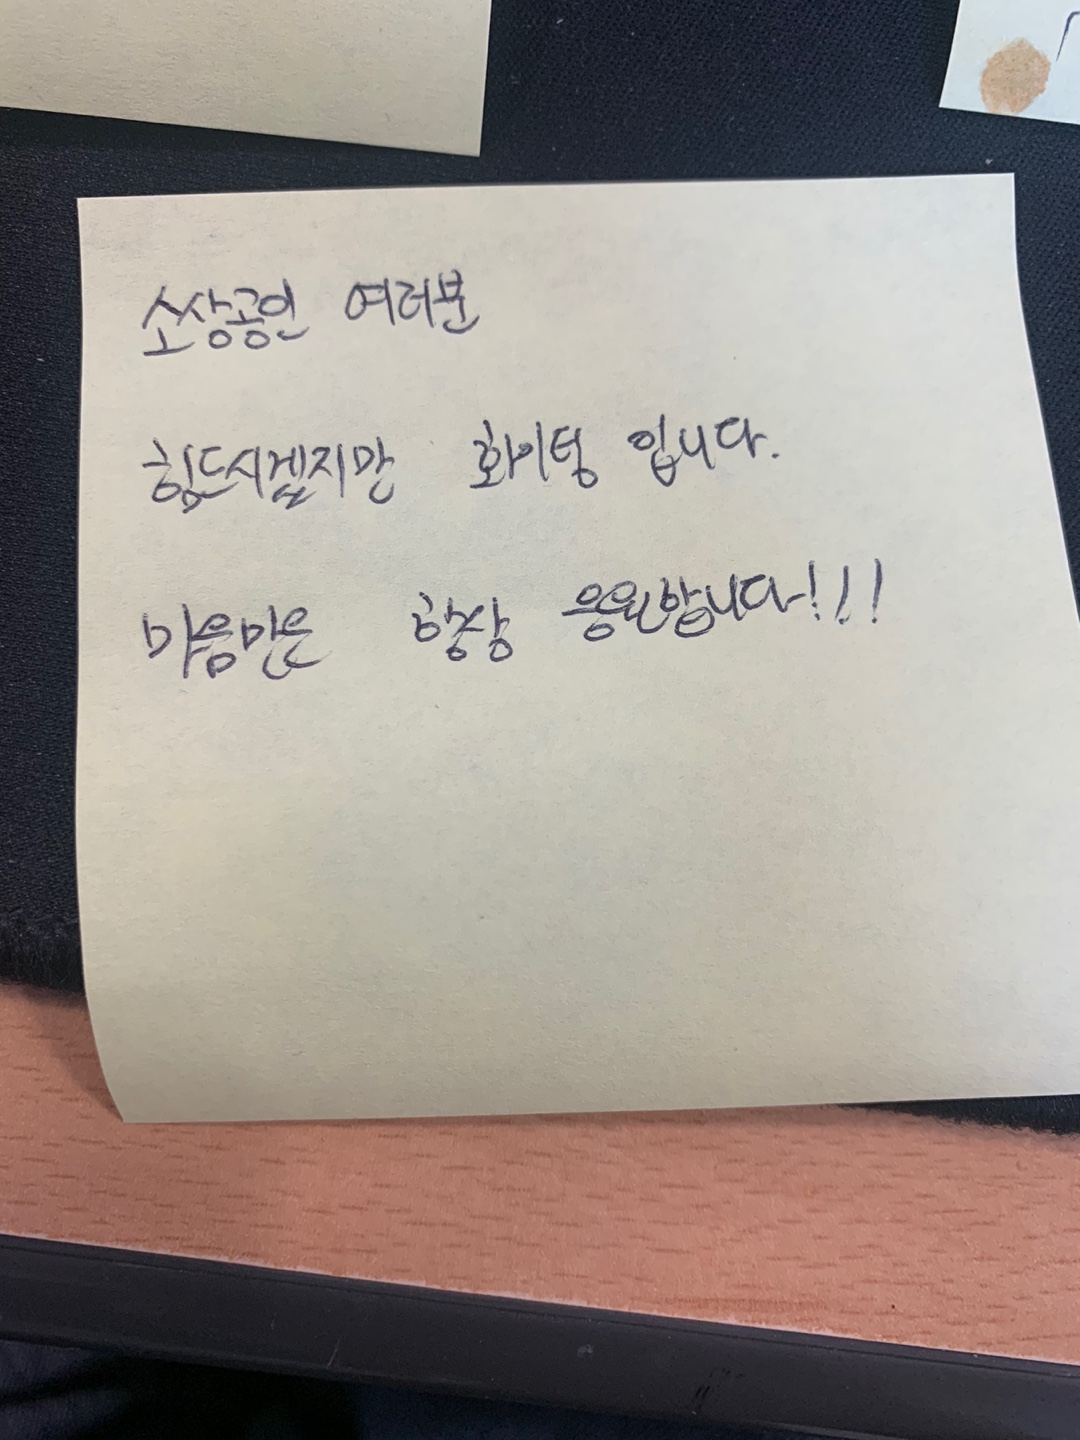 소상공인 여러분
힘드시겠지만 화이텅 입니다.
마음만은 항상 응원합니다!!!